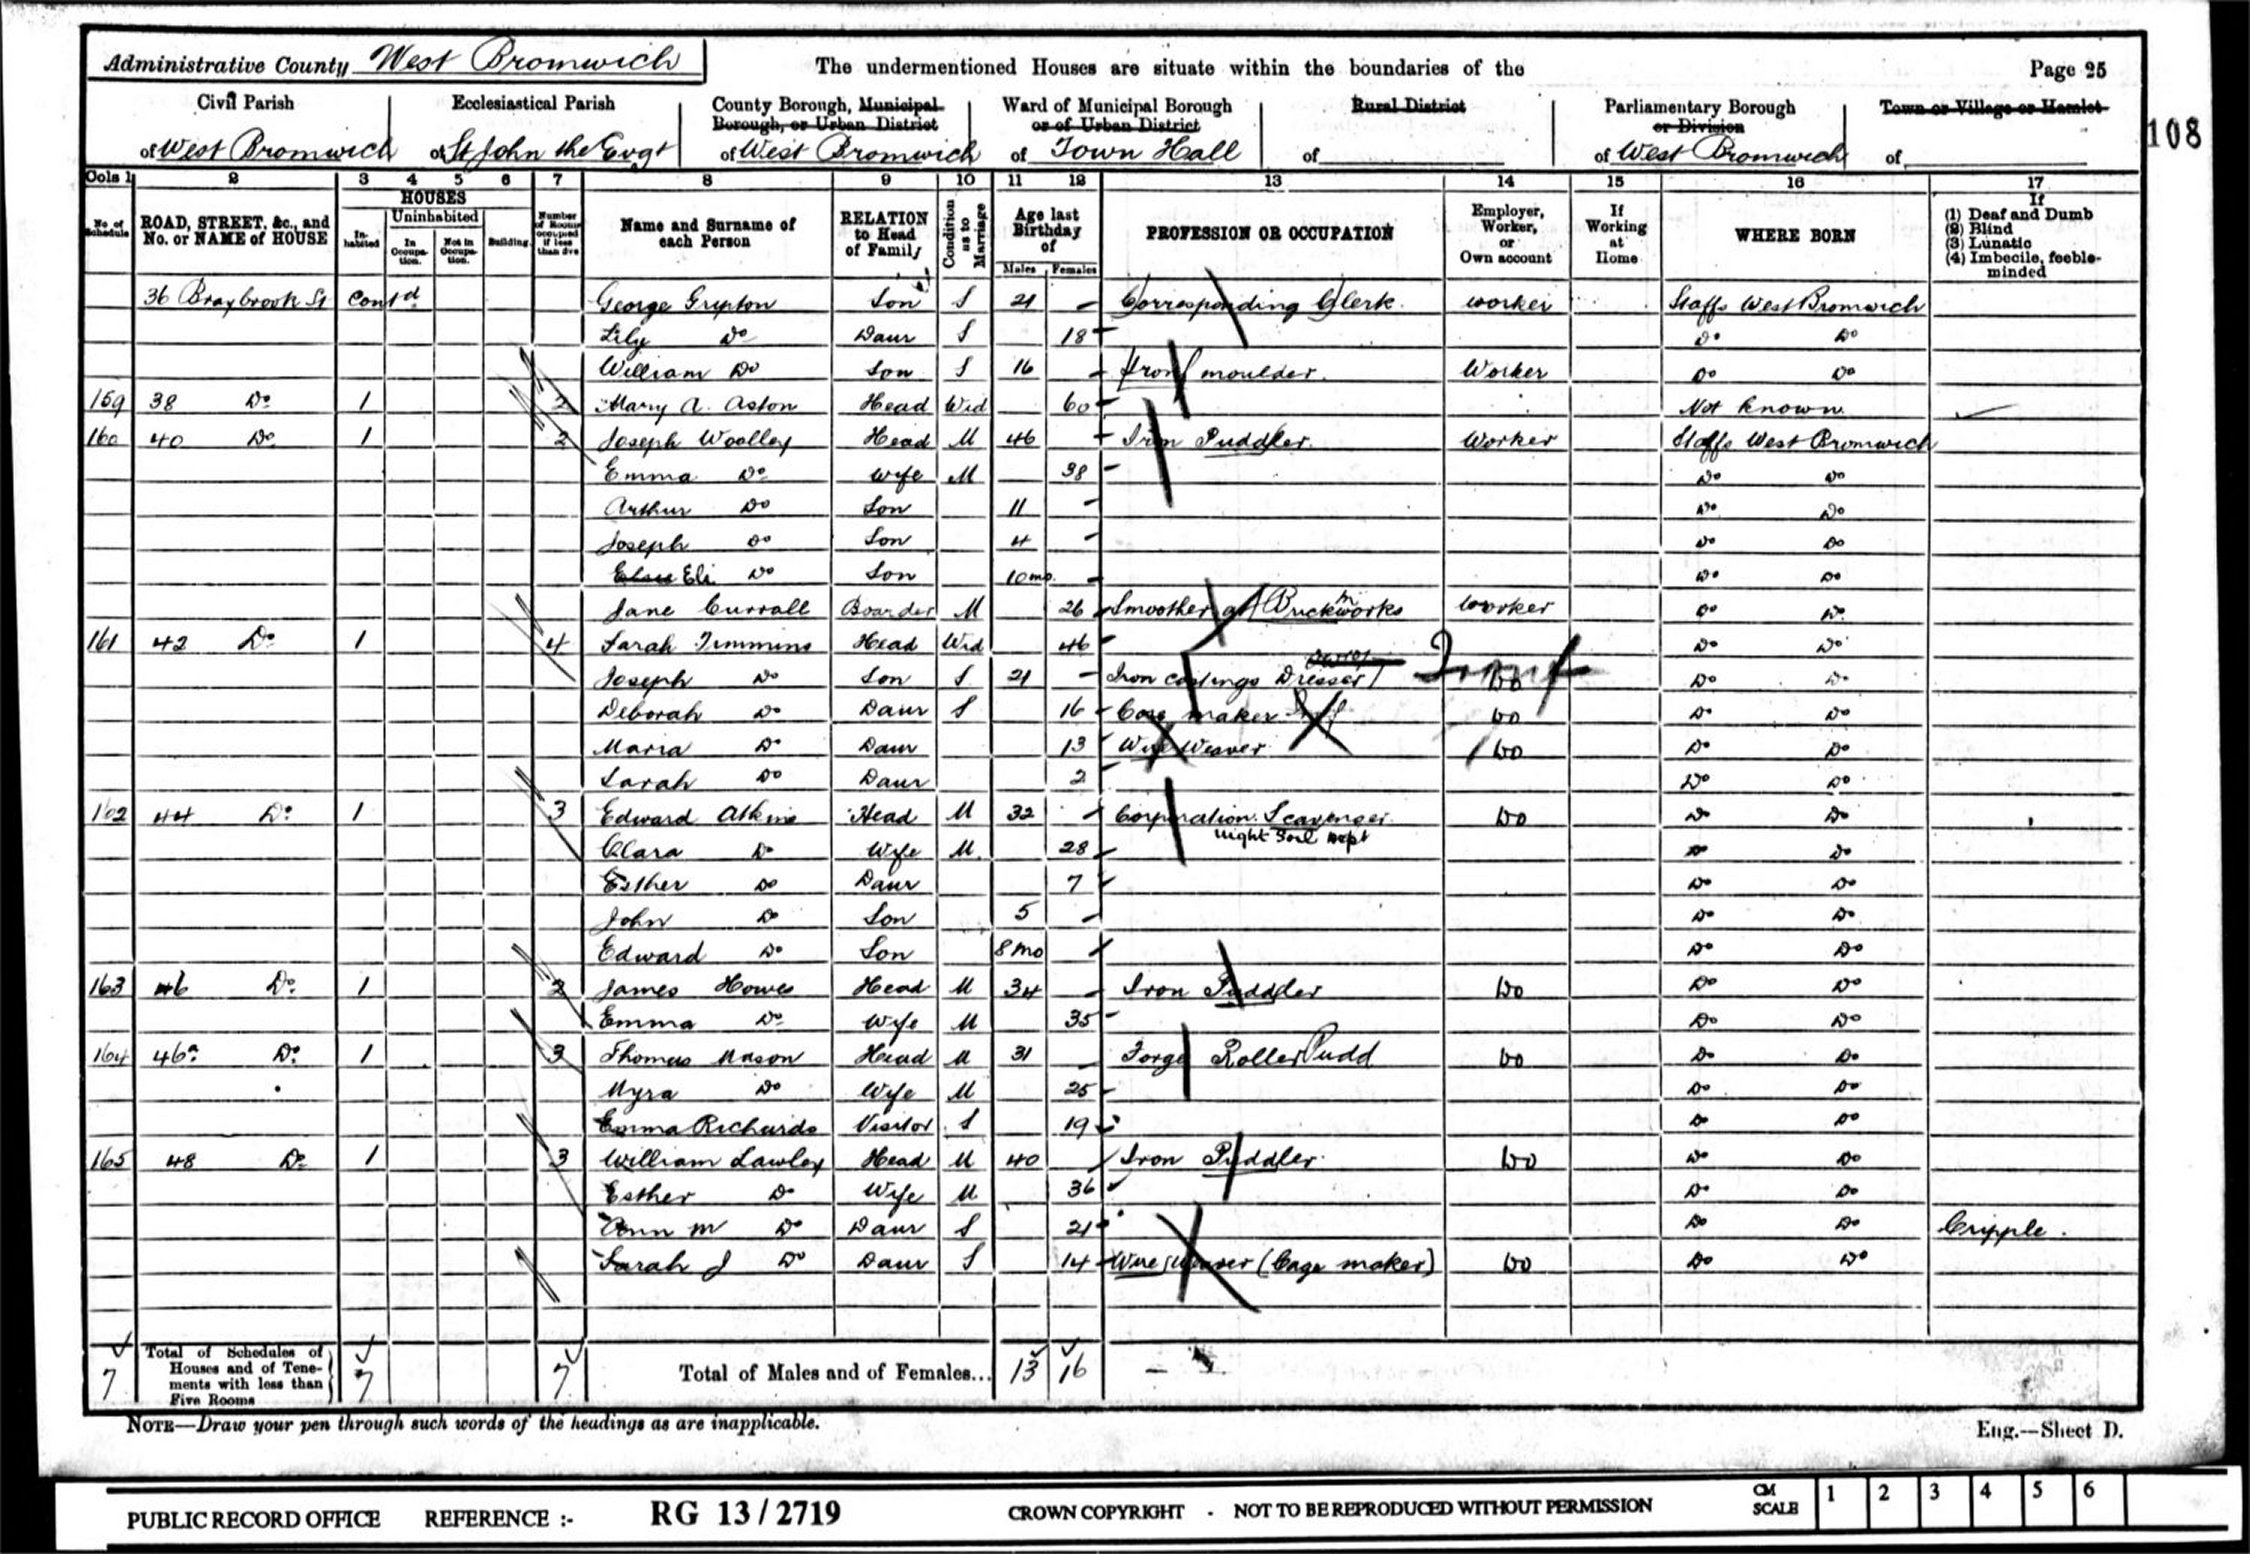 Administrative County West Bromwich The undermentioned Houses are situate within the boundaries of the Page 25
Civil Parish Ecclesiastical Parish County Borough, Municipal Borough, or Urban District Ward of Municipal Borough or of Urban District Rural District Parliamentary Borough or Division Town or Village or Hamlet
of West Bromwich of St John the Evgt of West Bromwich of Town Hall of of West Bromwich of
108
Cols 1 2 3 4 5 6 7 8 9 10 11 12 13 14 15 16 17
No of Schedule ROAD, STREET, &c., and No. or NAME of HOUSE HOUSES Inhabited Uninhabited In Occupation. Not in Occupation. Building Number of Rooms occupied if less than five Name and Surname of each Person RELATION to Head of Family Condition as to Marriage Age last Birthday of Males Females PROFESSION OR OCCUPATION Employer, Worker, or Own account If Working at Home WHERE BORN If (1) Deaf and Dumb (2) Blind (3) Lunatic (4) Imbecile, feeble-minded
36 Braybrook St Contd George Gripton Son S 21 - Corresponding Clerk. worker Staffs West Bromwich
Lily Do Daur S 18 Do Do
William Do Son S 16 - Iron moulder. Worker Do Do
159 38 Do 1 2 Mary A. Aston Head Wid 60 Not known
160 40 Do 1 2 Joseph Woolley Head M 46 Iron Puddler. Worker Staffs West Bromwich
Emma Do Wife M 38 Do Do
Arthur Do Son 11 - Do Do
Joseph Do Son 4 Do Do
Eli Do Son 10 mo. - Do Do
Jane Currall Boarder M 26 Smoother at Buckworks worker Do Do
161 42 Do 1 4 Sarah Timmins Head Wid 46 Do Do
Joseph Do Son S 21 - Iron castings Dresser Do Do Do
Deborah Do Daur S 16 maker Do Do Do
Maria Do Daur 13 Wire Weaver Do Do Do
Sarah Do Daur 2 Do Do
162 44 Do 1 3 Edward Atkins Head M 32 Corporation Scavenger Do Do Do
Night Soil Dept
Clara Do Wife M 28 Do Do
Esther Do Daur 7 Do Do
John Do Son 5 - Do Do
Edward Do Son 8 mo Do Do
163 46 Do 1 2 James Howes Head M 34 - Iron Puddler Do Do Do
Emma Do Wife M 35 Do Do
164 46a Do 1 3 Thomas Mason Head M 31 Forge Roller Pudd Do Do Do
Myra Do Wife M 25 Do Do
Emma Richards Visitor S 19 Do Do
165 48 Do 1 3 William Lawley Head M 40 Iron Puddler Do Do Do
Esther Do Wife M 36 Do Do
Ann M Do Daur S 21 Do Do Cripple.
Sarah J Do Daur S 14 Wire Weaver (Cage maker) Do Do Do
7 Total of Schedules of Houses and of Tenements with less than Five Rooms 7 7 Total of Males and of Females... 13 16
NOTE—Draw your pen through such words of the headings as are inapplicable. Eng.—Sheet D.
PUBLIC RECORD OFFICE REFERENCE :- RG 13 / 2719 CROWN COPYRIGHT - NOT TO BE REPRODUCED WITHOUT PERMISSION CM SCALE 1 2 3 4 5 6